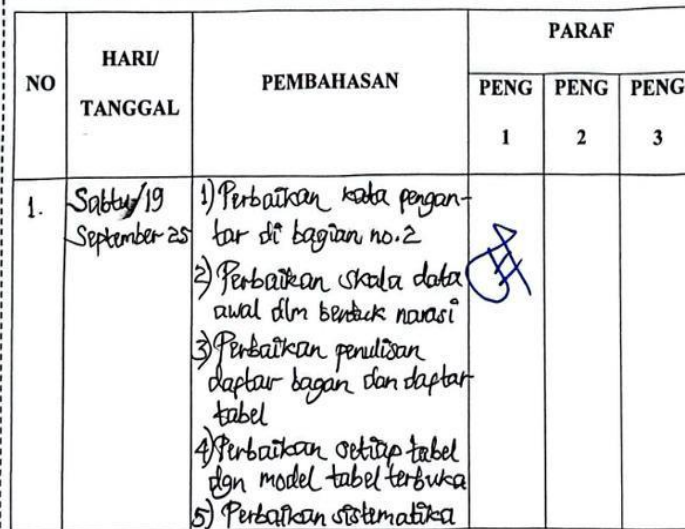 NO
HARI/
TANGGAL
PEMBAHASAN
PARAF
PENG
1
PENG
2
PENG
3
1.
Sabtu/19
September 25
1) Perbaikan kata pengan-
tar di bagian no.2
2) Perbaikan skala data
awal dlm bentuk narasi
3) Perbaikan penulisan
daftar bagan dan daftar
tabel
4) Perbaikan setiap tabel
dgn model tabel terbuka
5) Perbaikan sistematika